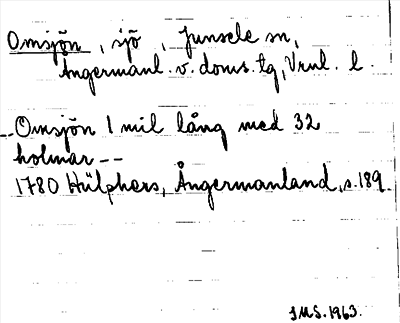 Omsjön, sjö, Junsele sn,
Ångermanl. v. doms. tg, Vrnl. l.
--Omsjön 1 mil lång med 32
holmar--
1780 Hülphers, Ångermanland, s. 189.
IMS. 1963.